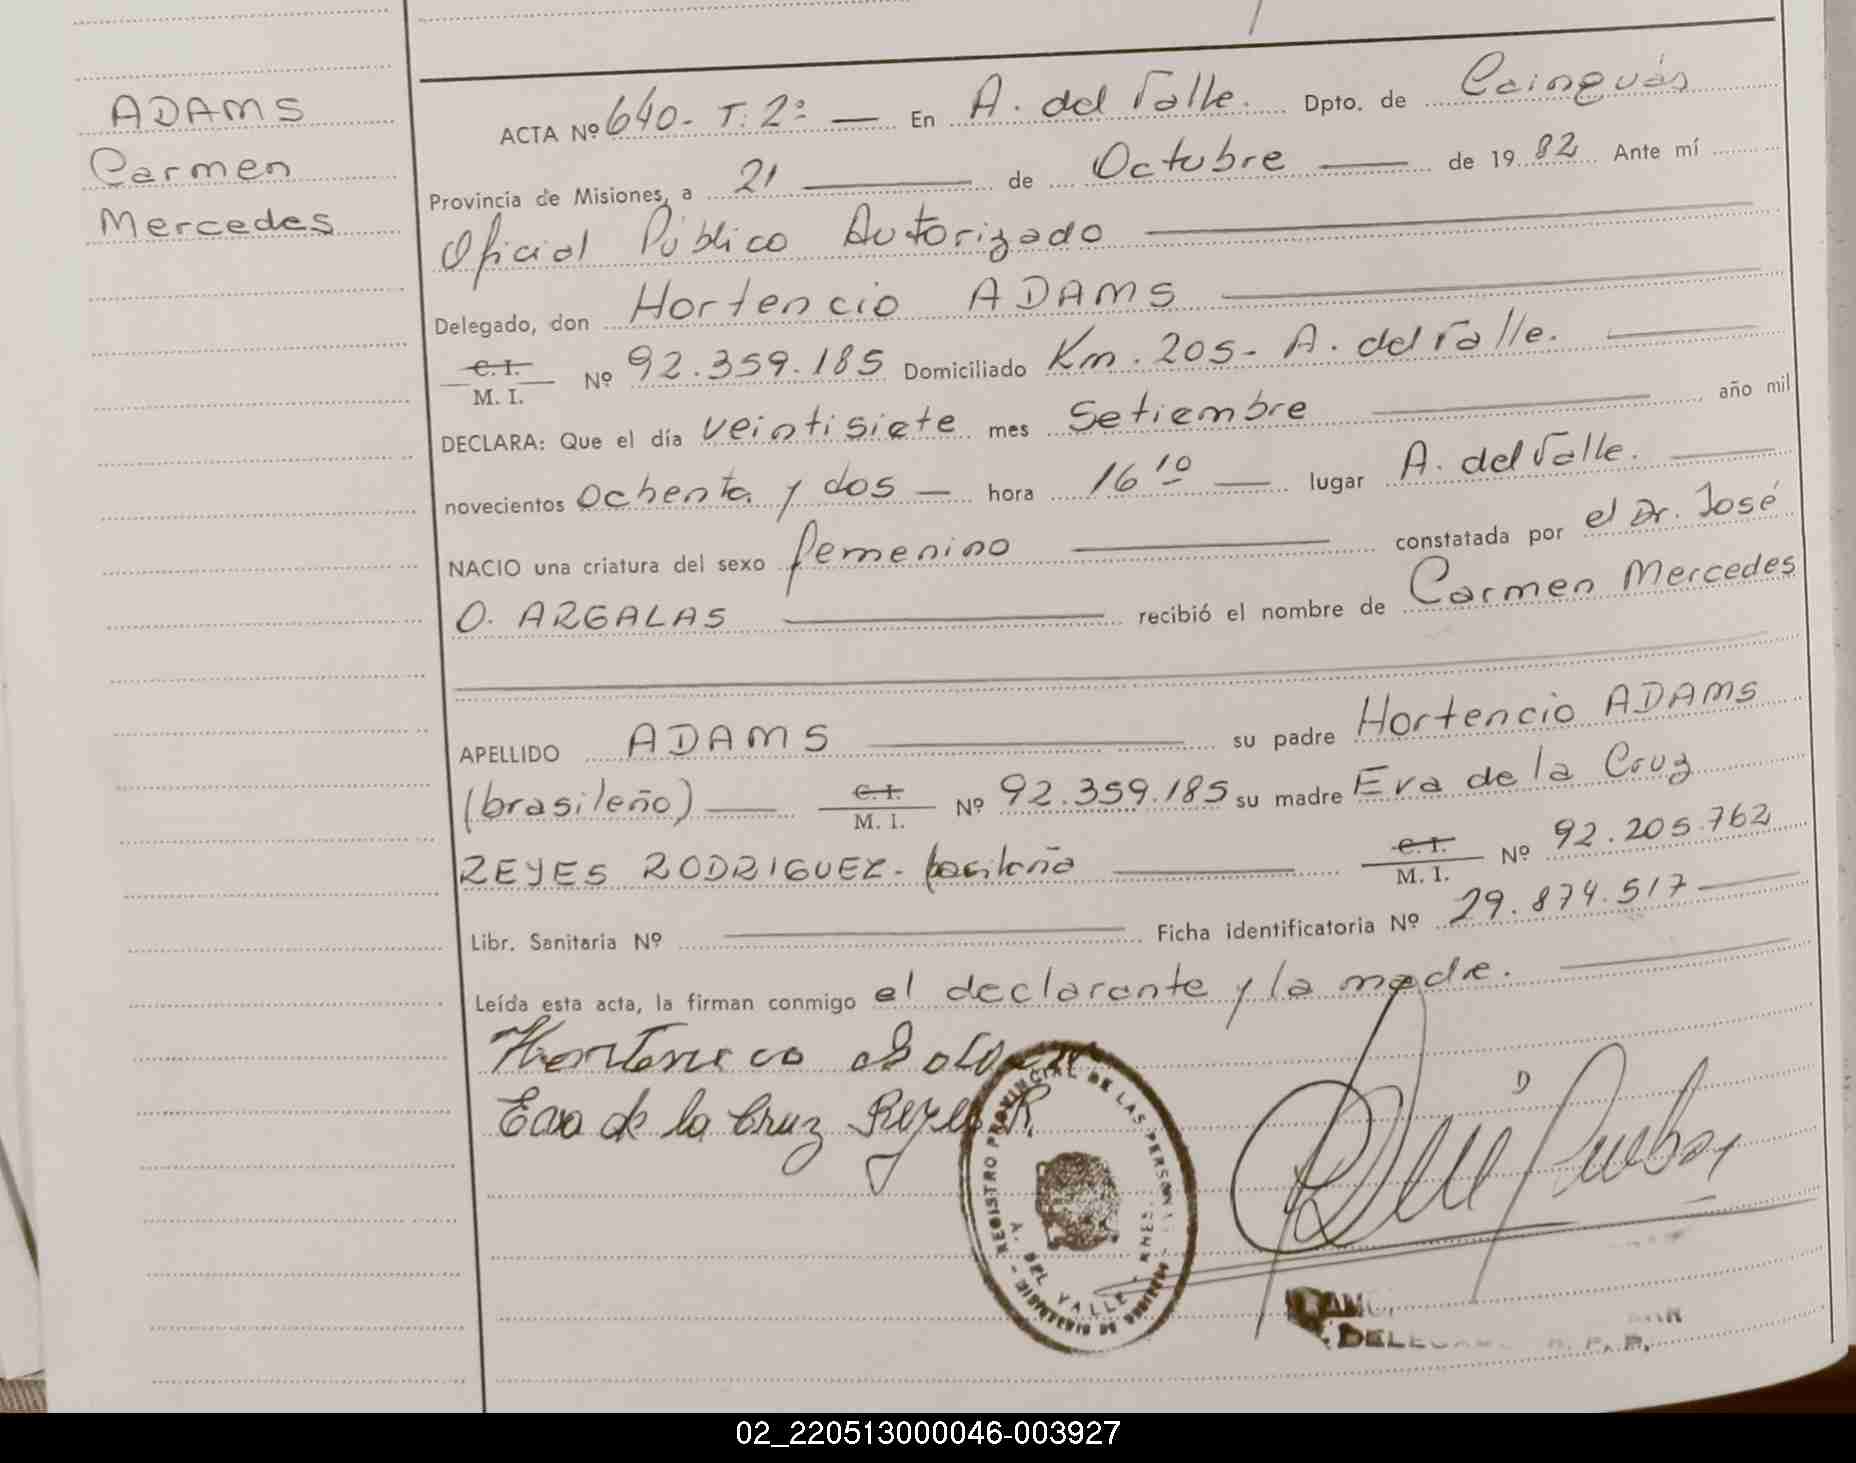 ADAMS
Carmen
Mercedes
ACTA Nº 640- T. 2º — En A. del Valle. Dpto. de Cainguás
Provincia de Misiones, a 21 — de Octubre — de 19 82 Ante mí
Oficial Público Autorizado —
Delegado, don Hortencio ADAMS —
C. I.
M. I. Nº 92.359.185 Domiciliado Km. 205- A. del Valle. —
DECLARA: Que el día veintisiete mes Setiembre — año mil
novecientos ochenta y dos — hora 16 10 — lugar A. del Valle. —
NACIO una criatura del sexo femenino — constatada por el Dr. José
O. ARGALAS — recibió el nombre de Carmen Mercedes
APELLIDO ADAMS — su padre Hortencio ADAMS
(brasileño) — C. I. M. I. Nº 92.359.185 su madre Eva de la Cruz
REYES RODRIGUEZ - brasileña — C. I. M. I. Nº 92.205.762
Libr. Sanitaria Nº — Ficha identificatoria Nº 29.874.517 —
Leída esta acta, la firman conmigo el declarante y la madre. —
Eva de la Cruz Reyes R.
REGISTRO PROVINCIAL DE LAS PERSONAS
A. DEL VALLE - MNES.
MINISTERIO DE GOBIERNO
R. P. P.
02_220513000046-003927